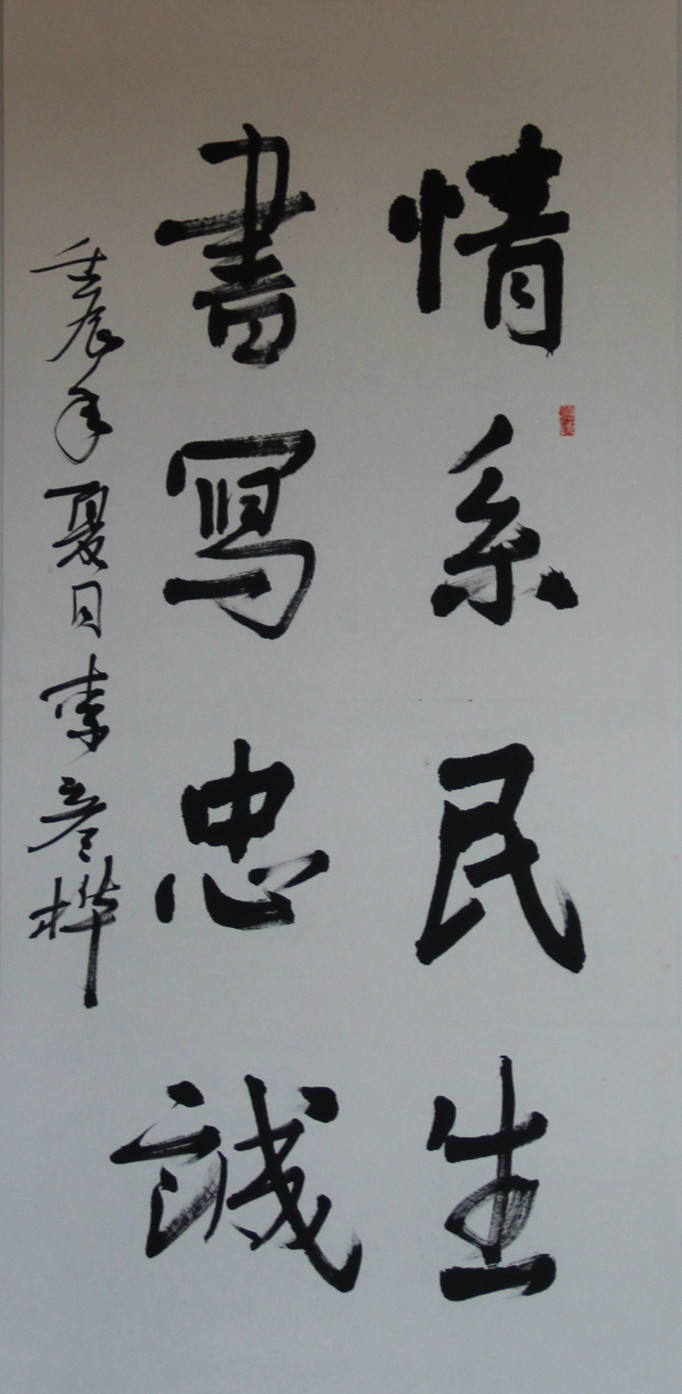 情系民生
書寫忠誠
壬辰年夏日李彦樺